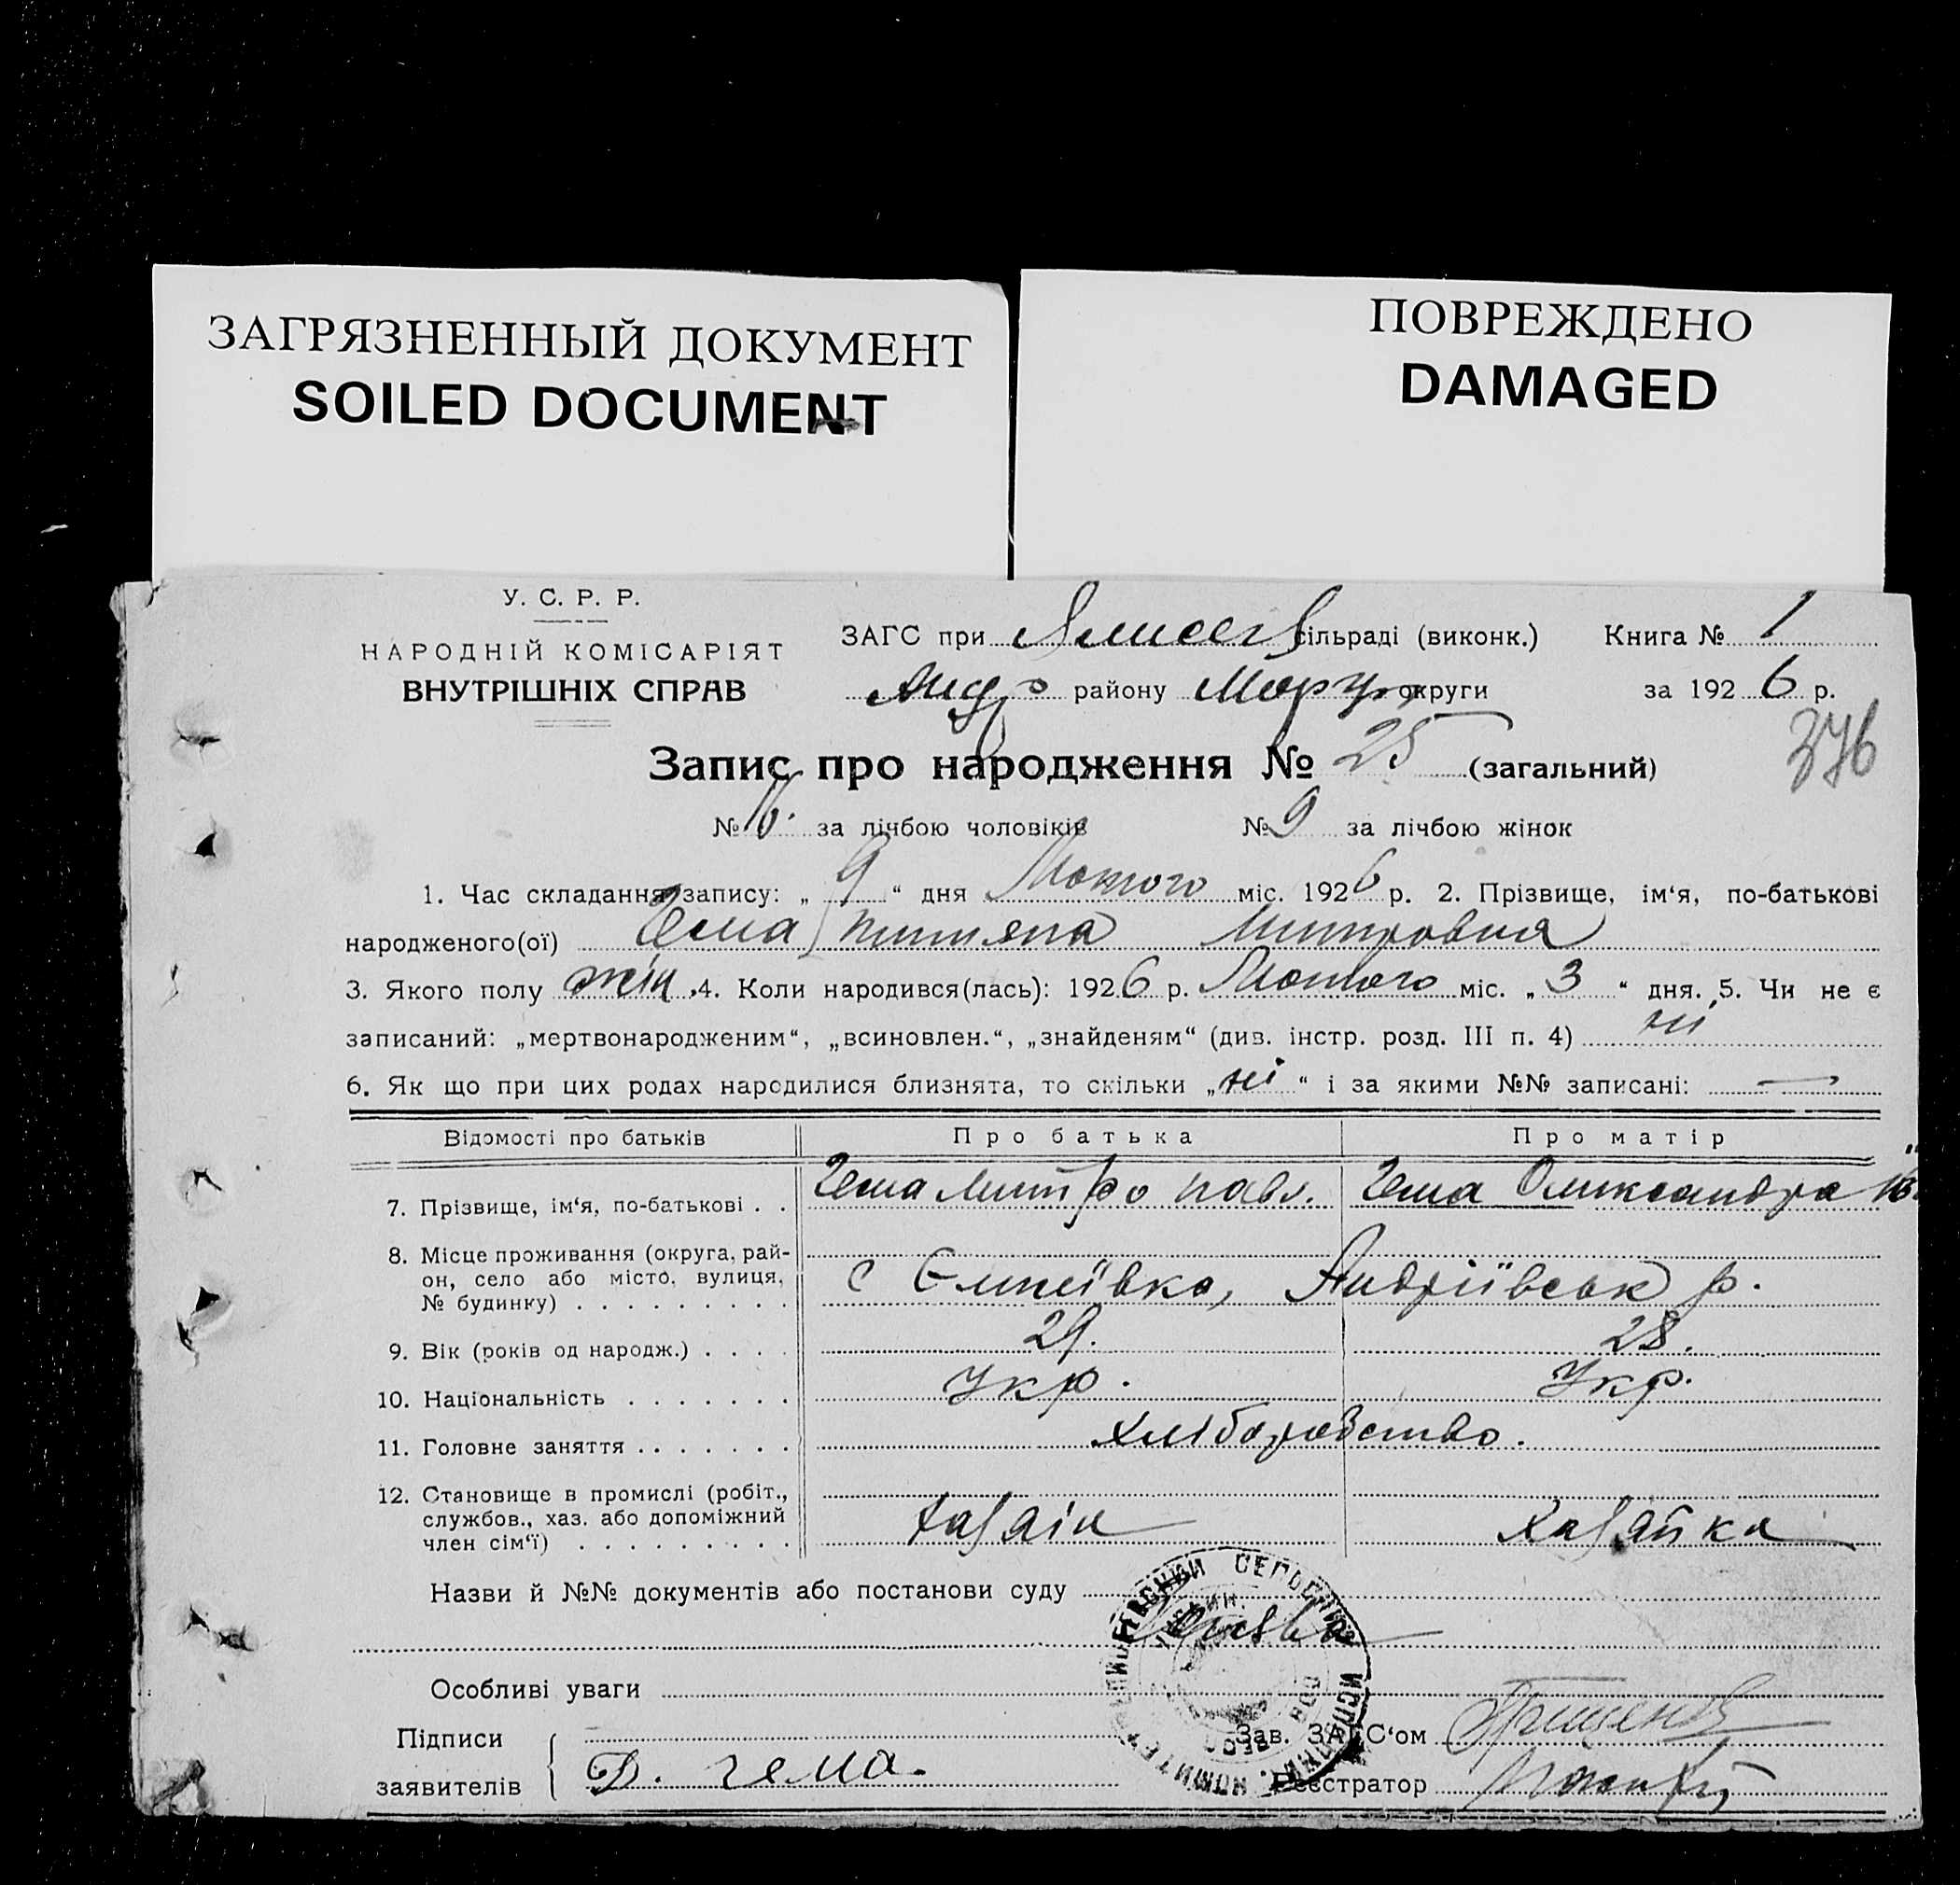 ЗАГРЯЗНЕННЫЙ ДОКУМЕНТ
SOILED DOCUMENT
ПОВРЕЖДЕНО
DAMAGED
У. С. Р. Р.
НАРОДНІЙ КОМІСАРІЯТ
ВНУТРІШНІХ СПРАВ
ЗАГС при сільраді (виконк.) Книга № 1
Андр району округи за 192 6 р.
376
Запис про народження № 25 (загальний)
№ 16. за лічбою чоловіків № 9 за лічбою жінок
1. Час складання запису: „ 9 “ дня Лютого міс. 192 6 р. 2. Прізвище, ім‘я, по-батькові
народженого(ої) Чема Митровна
3. Якого полу жін. 4. Коли народився(лась): 192 6 р. Лютого міс. „ 3 “ дня. 5. Чи не є
записаний: „мертвонародженим“, „всиновлен.“, „знайденям“ (див. інстр. розд. III п. 4) ні
6. Як що при цих родах народилися близнята, то скільки „ ні “ і за якими №№ записані: —
Відомості про батьків Про батька Про матір
7. Прізвище, ім‘я, по-батькові . . Чема Митро Павл. Чема Олександра
8. Місце проживання (округа, рай-
он, село або місто, вулиця,
№ будинку) . . . . . . . . . с Єлисеївка, Андріївськ р.
9. Вік (років од народж.) . . . . 29. 28.
10. Національність . . . . . . . Укр. Укр.
11. Головне заняття . . . . . . . Хліборобство.
12. Становище в промислі (робіт.,
службов., хаз. або допоміжний
член сім‘ї) . . . . . . . . . Хазаін Хазайка
Назви й №№ документів або постанови суду
Особливі уваги
Підписи
заявителів Д. Чема.
Зав. ЗАГС‘ом
Реєстратор